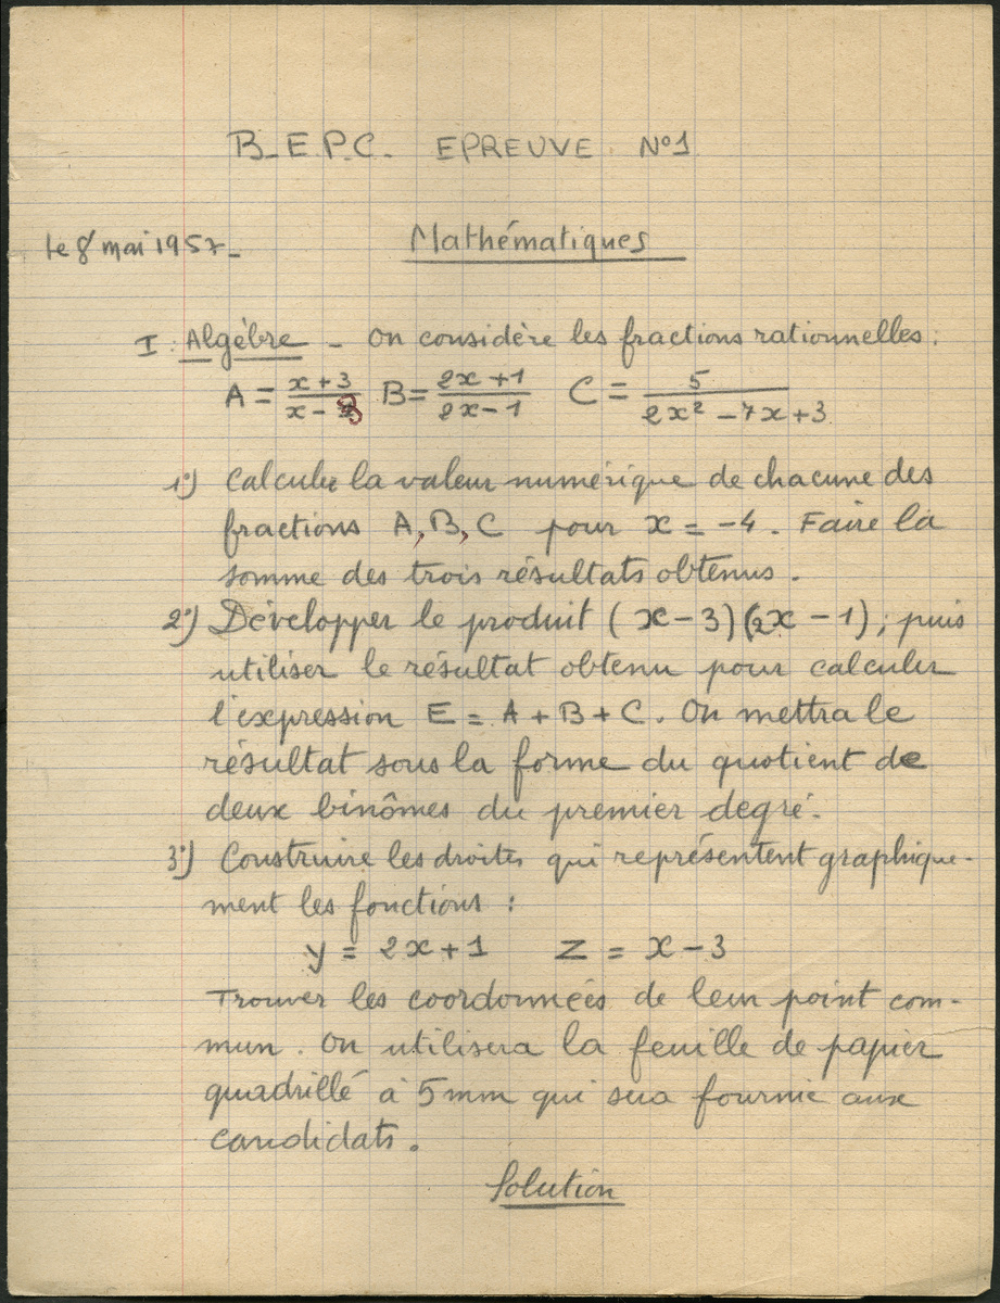 B.E.P.C. EPREUVE N°1
le 8 mai 1957_ Mathématiques
I. Algèbre _ On considère les fractions rationnelles :
A = (x+3)/(x-3) B = (2x+1)/(2x-1) C = 5/(2x² - 7x + 3)
1°) Calculer la valeur numérique de chacune des
fractions A, B, C pour x = -4. Faire la
somme des trois résultats obtenus.
2°) Développer le produit (x-3)(2x-1); puis
utiliser le résultat obtenu pour calculer
l'expression E = A + B + C. On mettra le
résultat sous la forme du quotient de
deux binômes du premier degré.
3°) Construire les droites qui représentent graphique-
ment les fonctions :
y = 2x + 1 z = x - 3
Trouver les coordonnées de leur point com-
mun. On utilisera la feuille de papier
quadrillé à 5mm qui sera fournie aux
candidats.
Solution